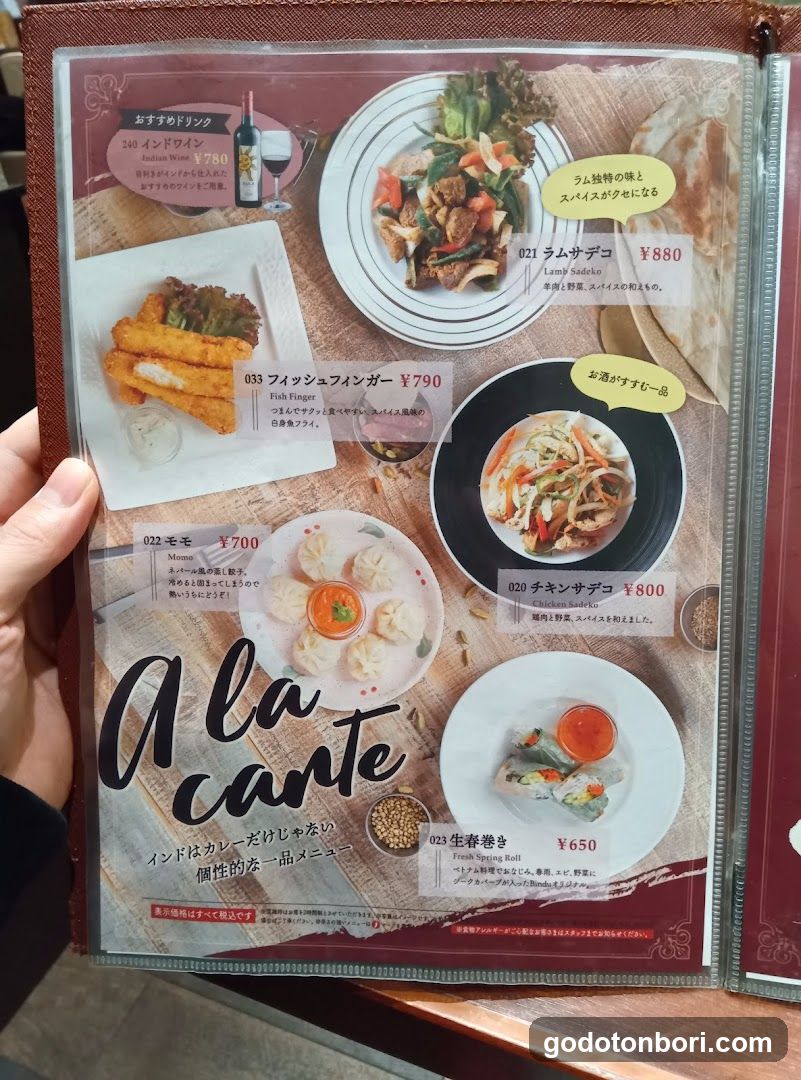 おすすめドリンク
240 インドワイン
Indian Wine ¥780
目利きがインドから仕入れた
おすすめのワインをご用意。
ラム独特の味と
スパイスがクセになる
021 ラムサデコ ¥880
Lamb Sadeko
羊肉と野菜、スパイスの和えもの。
033 フィッシュフィンガー ¥790
Fish Finger
つまんでサクッと食べやすい、スパイス風味の
白身魚フライ。
お酒がすすむ一品
022 モモ ¥700
Momo
ネパール風の蒸し餃子。
冷めると固まってしまうので
熱いうちにどうぞ!
020 チキンサデコ ¥800
Chicken Sadeko
鶏肉と野菜、スパイスを和えました。
A la
carte
インドはカレーだけじゃない
個性的な一品メニュー
023 生春巻き ¥650
Fresh Spring Roll
ベトナム料理でおなじみ。春雨、エビ、野菜に
シークカバーブが入ったBinduオリジナル。
表示価格はすべて税込です
※食物アレルギーがご心配なお客さまはスタッフまでお知らせください。
godotonbori.com